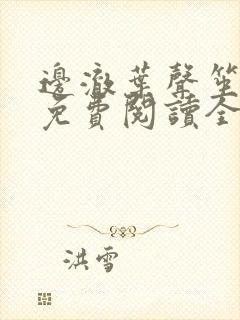 邊澈葉聲笙
免費閱讀全
洪雪